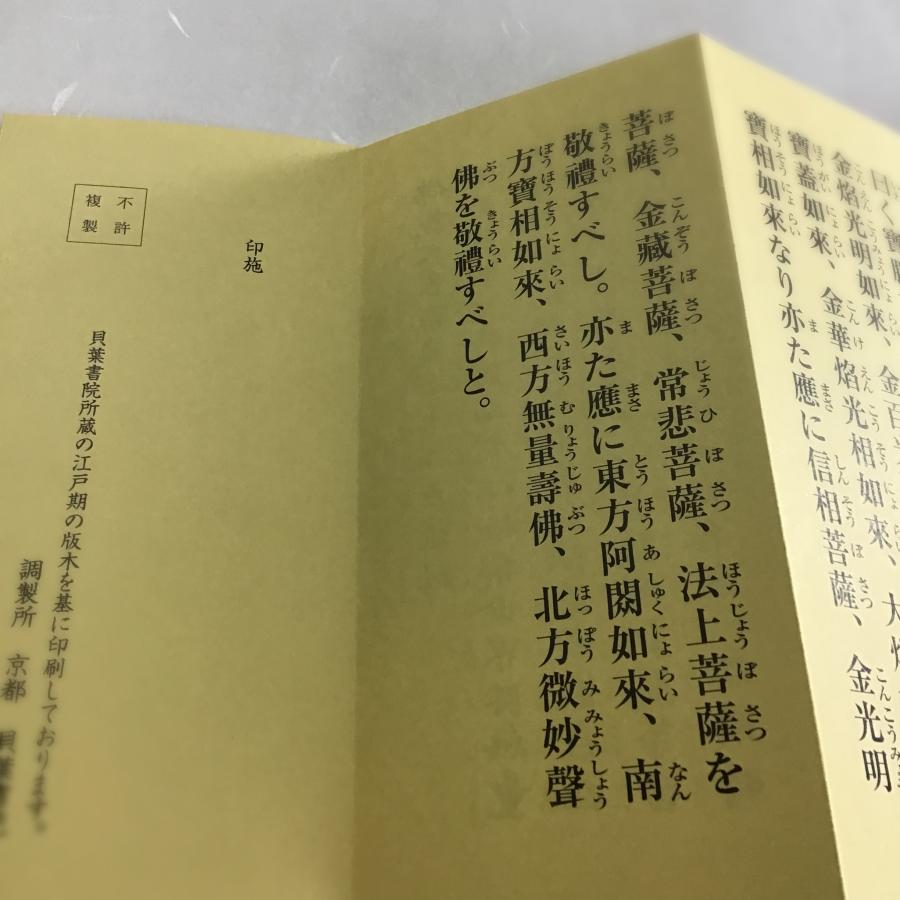 曰く寶勝如來、
金焰光明如來、金百
寶蓋如來、金華焰光相如來、大
寶相如來なり亦た應に信相菩薩、金光明
菩薩、金藏菩薩、常悲菩薩、法上菩薩を
敬禮すべし。亦た應に東方阿閦如來、南
方寶相如來、西方無量壽佛、北方微妙聲
佛を敬禮すべしと。
印施
不許
複製
貝葉書院所蔵の江戸期の版木を基に印刷しております。
調製所 京都 貝葉書